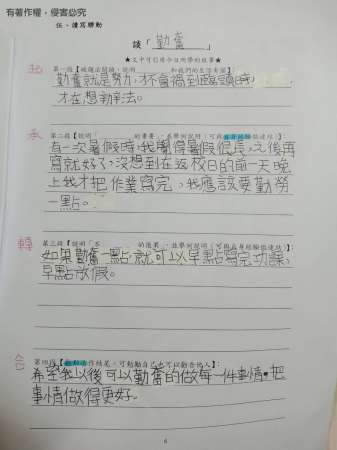 有著作權‧侵害必究
伍、讀寫聯動
談「勤奮」
★文中可引用今日所學的故事★
起
第一段【破題法開頭,說明 和我們的生活有關】
勤奮就是努力,才不會禍到臨頭時,
才在想辦法。
承
第二段【說明 的重要,並舉例說明;可與自身經驗做連結】:
有一次暑假時,我覺得暑假很長,之後再
寫就好了,沒想到在返校日的前一天晚
上我才把作業寫完,我應該要勤勞
一點。
轉
第三段【說明「不 的後果,並舉例說明;可與自身經驗做連結】:
如果勤奮一點就可以早點寫完功課,
早點放假。
合
第四段【 作結尾,可勉勵自己也可以勸告他人】:
希望我以後可以勤奮的做每一件事情,把
事情做得更好。
6